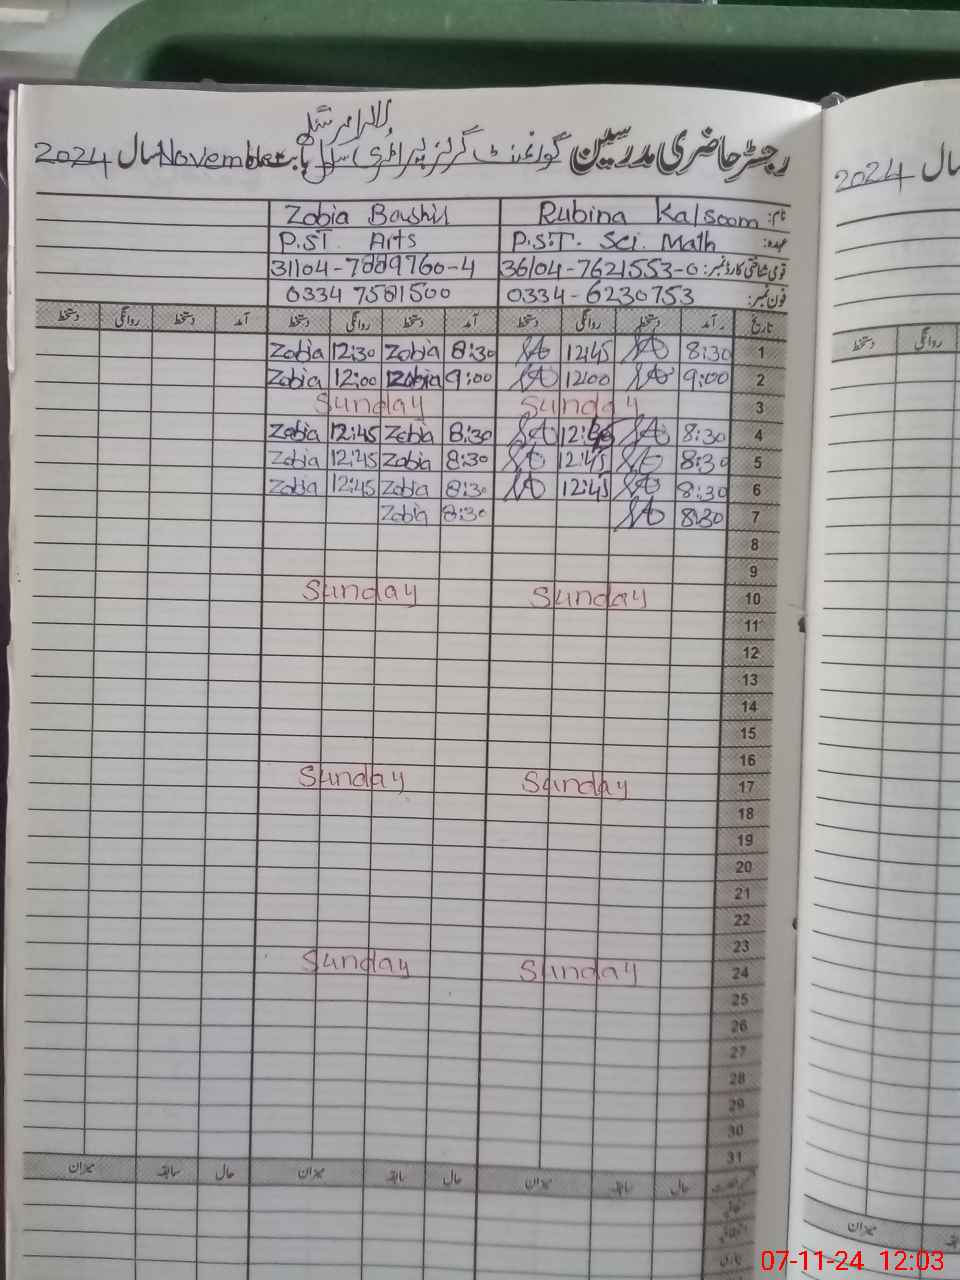 لال امیر سنگھ
رجسٹر حاضری مدرسین گورنمنٹ گرلز پرائمری سکول بابت November سال 2024
نام: Rubina Kalsoom Zobia Bashir
عہدہ: P.S.T. Sci. Math P.ST. Arts
قومی شناختی کارڈ نمبر: 36104-7621553-0 31104-7889760-4
فون نمبر: 0334-6230753 0334 7581500
تاریخ آمد دستخط روانگی دستخط آمد دستخط روانگی دستخط آمد دستخط روانگی دستخط
1 8:30 12:45 8:30 Zobia 12:30 Zobia
2 9:00 12:00 9:00 Zobia 12:00 Zobia
3 Sunday Sunday
4 8:30 8:30 Zobia 12:45 Zobia
5 8:30 12:45 8:30 Zobia 12:45 Zobia
6 8:30 12:45 8:30 Zobia 12:45 Zobia
7 8:30 8:30 Zobia
8
9
10 Sunday Sunday
11
12
13
14
15
16
17 Sunday Sunday
18
19
20
21
22
23
24 Sunday Sunday
25
26
27
28
29
30
31
حال سابقہ میزان حال سابقہ میزان حال سابقہ میزان
سال 2024
روانگی دستخط
میزان
07-11-24 12:03